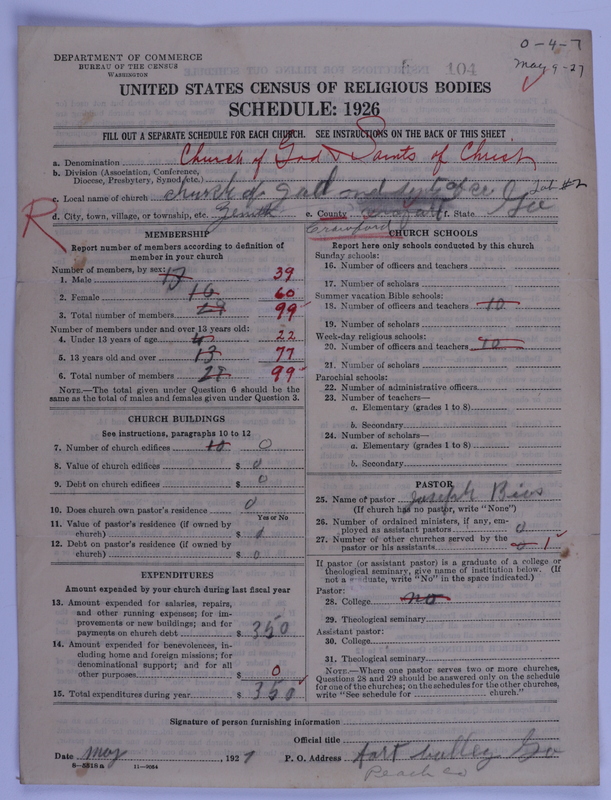 0-4-7
May 9-27
DEPARTMENT OF COMMERCE
BUREAU OF THE CENSUS
WASHINGTON
104
UNITED STATES CENSUS OF RELIGIOUS BODIES
SCHEDULE: 1926
FILL OUT A SEPARATE SCHEDULE FOR EACH CHURCH. SEE INSTRUCTIONS ON THE BACK OF THIS SHEET
a. Denomination Church of God & Saints of Christ
b. Division (Association, Conference,
Diocese, Presbytery, Synod, etc.)
c. Local name of church church of Gall and
d. City, town, village, or township, etc. Zenith e. County f. State Ge
Crawford
R
MEMBERSHIP
Report number of members according to definition of
member in your church
Number of members, by sex:
1. Male 13 39
2. Female 16 60
3. Total number of members 29 99
Number of members under and over 13 years old:
4. Under 13 years of age 22
5. 13 years old and over 13 77
6. Total number of members 99
NOTE.—The total given under Question 6 should be
same as the total of males and females given under Question 3.
CHURCH BUILDINGS
See instructions, paragraphs 10 to 12
7. Number of church edifices 10 0
8. Value of church edifices $ 0
9. Debt on church edifices $ 0
10. Does church own pastor's residence 0
Yes or No
11. Value of pastor's residence (if owned by
church) $ 0
12. Debt on pastor's residence (if owned by
church) $ 0
EXPENDITURES
Amount expended by your church during last fiscal year
13. Amount expended for salaries, repairs,
and other running expenses; for im-
provements or new buildings; and for
payments on church debt $ 350
14. Amount expended for benevolences, in-
cluding home and foreign missions; for
denominational support; and for all
other purposes $ 0
15. Total expenditures during year $ 350
CHURCH SCHOOLS
Report here only schools conducted by this church
Sunday schools:
16. Number of officers and teachers
17. Number of scholars
Summer vacation Bible schools:
18. Number of officers and teachers 10
19. Number of scholars
Week-day religious schools:
20. Number of officers and teachers 10
21. Number of scholars
Parochial schools:
22. Number of administrative officers
23. Number of teachers—
a. Elementary (grades 1 to 8)
b. Secondary
24. Number of scholars—
a. Elementary (grades 1 to 8)
b. Secondary
PASTOR
25. Name of pastor Joseph
(If church has no pastor, write "None")
26. Number of ordained ministers, if any, em-
ployed as assistant pastors 0
27. Number of other churches served by the
pastor or his assistants 0 1
If pastor (or assistant pastor) is a graduate of a college or
theological seminary, give name of institution below. (If
not a graduate, write "No" in the space indicated.)
Pastor:
28. College no
29. Theological seminary
Assistant pastor:
30. College
31. Theological seminary
NOTE.—Where one pastor serves two or more churches,
Questions 28 and 29 should be answered only on the schedule
for one of the churches; on the schedules for the other churches,
write "See schedule for church."
Signature of person furnishing information
Official title
Date may, 1927 P. O. Address fort valley Ge
Peach co
8-5318a 11-9084